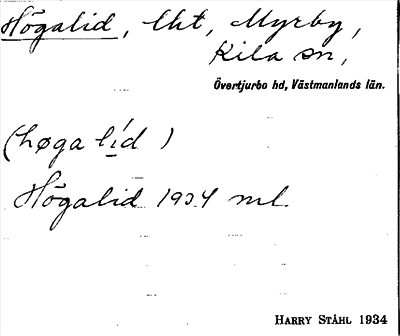 Högalid, lht, Myrby,
Kila sn,
Övertjurbo hd, Västmanlands län.
(høga lí̲d)
Högalid 1934 ml.
HARRY STÅHL 1934